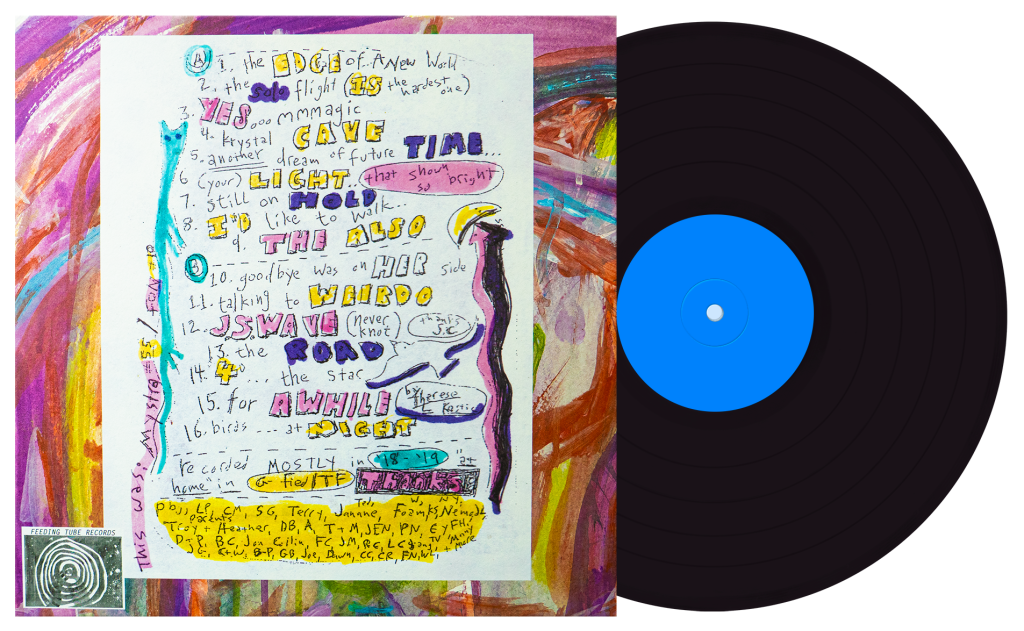 A 1. the EDGE of A New World
2. the Solo flight (IS the hardest one)
3. YES... mmmagic
4. krystal CAVE
5. another dream of future TIME...
6 (your) LIGHT.. that shown so bright
7. still on HOLD
8. I'D like to walk..
9. THE ALSO
B 10. goodbye was on HER side
11. talking to WEIRDO
12. J.S.WAVE (never knot) (thanks J.C)
13. the ROAD
14. 4 ... the star
15. for AWHILE by Therese
16. birds --- at NIGHT
recorded MOSTLY in '18-'19 "at
home" in THANKS!
pbjj, LP, CM, SG, Terry,
parents
Troy + Heather, DB, A, T+M, JEN, PN,
D+P, BC, Jon FC, JM,
B-P, GB, Joe, Dawn, CC, CR, + more
This was:
FEEDING TUBE RECORDS